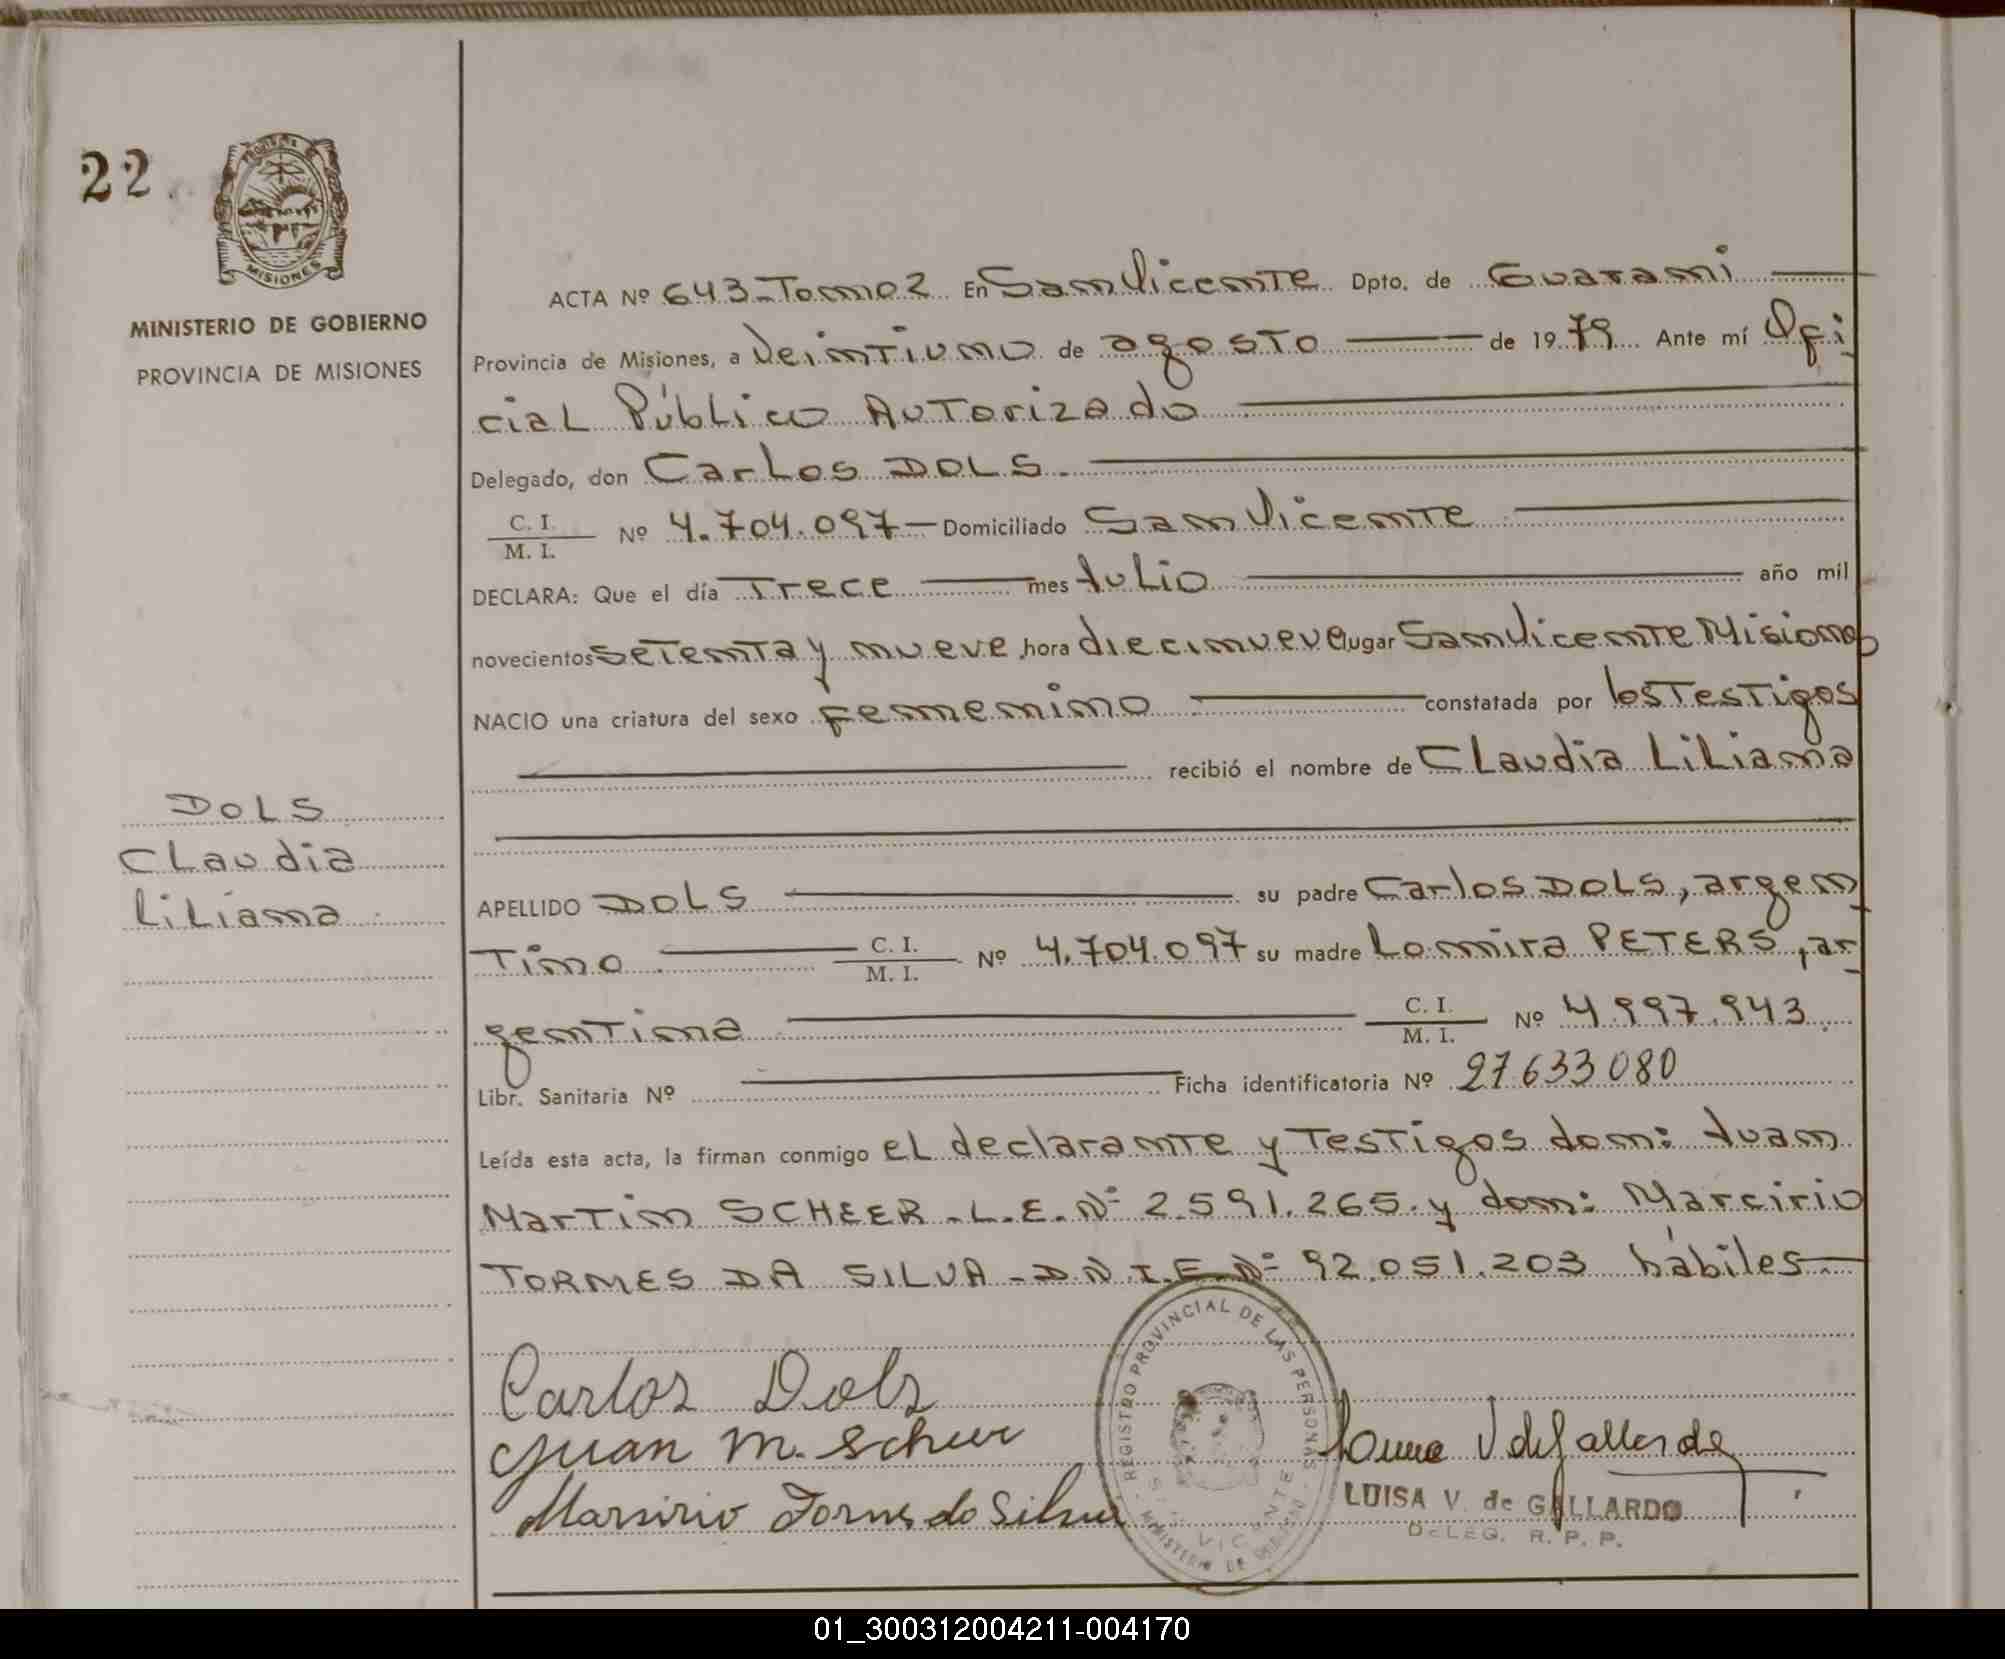 22
MISIONES
MINISTERIO DE GOBIERNO
PROVINCIA DE MISIONES
DOLS
Claudia
Liliana
ACTA Nº 643-Tomo 2 En San Vicente Dpto. de Guaraní
Provincia de Misiones, a Veintiuno de agosto de 1979 Ante mí Ofi
cial Público Autorizado
Delegado, don Carlos DOLS.
C. I.
M. I. Nº 4.704.097- Domiciliado San Vicente
DECLARA: Que el día Trece mes Julio año mil
novecientos setenta y nueve hora diecinueve lugar San Vicente Misiones
NACIO una criatura del sexo femenino constatada por los Testigos
recibió el nombre de Claudia Liliana
APELLIDO DOLS su padre Carlos DOLS, argen
tino C. I.
M. I. Nº 4.704.097 su madre Lomira PETERS, ar
gentina C. I.
M. I. Nº 4.997.943
Libr. Sanitaria Nº Ficha identificatoria Nº 27633080
Leída esta acta, la firman conmigo el declarante y Testigos don: Juan
Martin SCHEER.L.E.Nº 2.591.265. y don: Marcirio
TORMES DA SILVA-D.N.I.E.Nº 92.051.203 hábiles.
Carlos Dols
Juan M. Scheer
Marsirio Tormes da Silva
REGISTRO PROVINCIAL DE LAS PERSONAS
S. VICENTE
MINISTERIO DE GOBIERNO
Luisa V de Gallardo
LUISA V. de GALLARDO
DELEG. R. P. P.
01_300312004211-004170